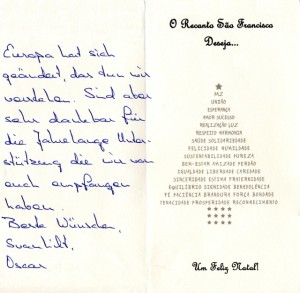 Europa hat sich
geändert, das tun wir
verstehen. Sind aber
sehr dankbar für
die Jahrelange Unter-
stützung die wir von
euch empfangen
haben.
Beste Wünsche,
Svanhild,
Oscar
O Recanto São Francisco
Deseja...
PAZ
UNIÃO
ESPERANÇA
AMOR SUCESSO
REALIZAÇÃO LUZ
RESPEITO HARMONIA
SAÚDE SOLIDARIEDADE
FELICIDADE HUMILDADE
PUREZA
AMIZADE PERDÃO
IGUALDADE LIBERDADE CARIDADE
SINCERIDADE ESTIMA FRATERNIDADE
EQUILÍBRIO DIGNIDADE BENEVOLÊNCIA
FÉ PACIÊNCIA BRANDURA FORÇA BONDADE
TENACIDADE PROSPERIDADE RECONHECIMENTO
Um Feliz Natal!